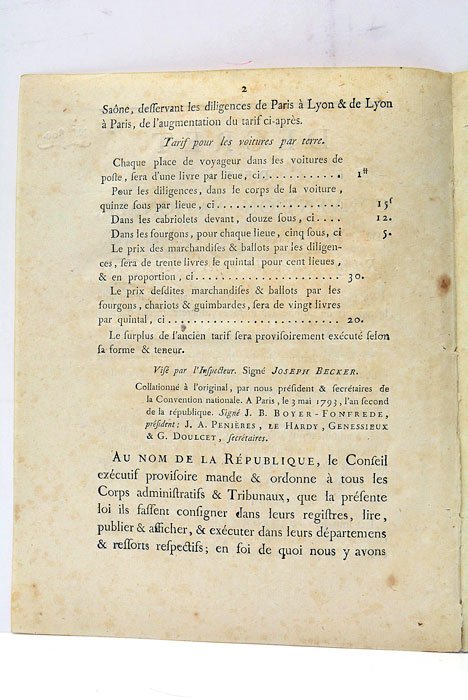 2
Saône, desſervant les diligences de Paris à Lyon & de Lyon
à Paris, de l'augmentation du tarif ci-après.
Tarif pour les voitures par terre.
Chaque place de voyageur dans les voitures de
poſte, ſera d'une livre par lieue, ci . . . . . . . . . . . 1ᵗᵗ
Pour les diligences, dans le corps de la voiture,
quinze ſous par lieue, ci . . . . . . . . . . . . . . . . . . 15ᶠ
Dans les cabriolets devant, douze ſous, ci . . . . 12.
Dans les fourgons, pour chaque lieue, cinq ſous, ci 5.
Le prix des marchandiſes & ballots par les diligen-
ces, ſera de trente livres le quintal pour cent lieues,
& en proportion, ci . . . . . . . . . . . . . . . . . . . . . 30.
Le prix deſdites marchandiſes & ballots par les
fourgons, chariots & guimbardes, ſera de vingt livres
par quintal, ci . . . . . . . . . . . . . . . . . . . . . . . . . 20.
Le ſurplus de l'ancien tarif ſera proviſoirement exécuté ſelon
ſa forme & teneur.
Viſé par l'Inſpecteur. Signé JOSEPH BECKER.
Collationné à l'original, par nous préſident & ſecrétaires de
la Convention nationale. A Paris, le 3 mai 1793, l'an ſecond
de la république. Signé J. B. BOYER-FONFREDE,
préſident; J. A. PENIÈRES, LE HARDY, GENESSIEUX
& G. DOULCET, ſecrétaires.
AU NOM DE LA RÉPUBLIQUE, le Conſeil
exécutif proviſoire mande & ordonne à tous les
Corps adminiſtratifs & Tribunaux, que la préſente
loi ils faſſent conſigner dans leurs regiſtres, lire,
publier & afficher, & exécuter dans leurs départemens
& reſſorts reſpectifs; en foi de quoi nous y avons